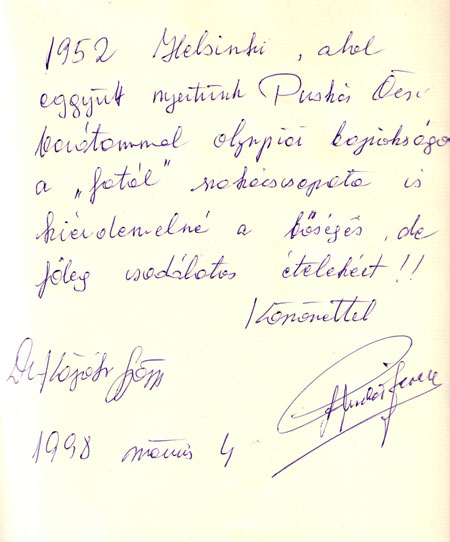 1952 Helsinki, ahol
eggyütt nyertünk Puskás Öcsi
barátommal olympiai bajnokságo
a „fatál" szakácscsapata is
kiérdemelné a bőséges, de
főleg csodálatos ételekért !!
Köszönettel
Dr. György
Puskás Ferenc
1998 március 4